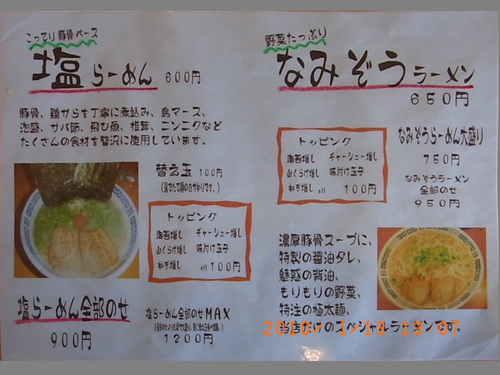 こってり豚骨ベース
塩らーめん 600円
豚骨、鶏がらを丁寧に煮込み、島マース、
泡盛、サバ節、飛び魚、椎茸、ニンニクなど
たくさんの食材を贅沢に使用しています。
替え玉 100円
トッピング
海苔増し チャーシュー増し
山くらげ増し 味付け玉子
ねぎ増し 各100円
塩らーめん全部のせ
900円
塩らーめん全部のせMAX
1200円
野菜たっぷり
なみぞうラーメン
650円
トッピング
海苔増し チャーシュー増し
山くらげ増し 味付け玉子
ねぎ増し 各100円
なみぞうらーめん大盛り
750円
なみぞうラーメン
全部のせ
950円
濃厚豚骨スープに、
特製の醤油タレ、
魅惑の背油、
もりもりの野菜、
特注の極太麺、
当店だけのスペシャルラーメンです。